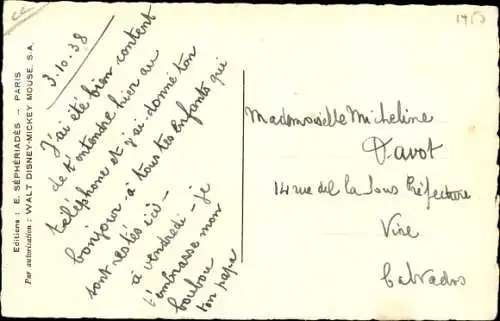 Editions : E. SÉPHÉRIADÈS -- PARIS
Par autorisation : WALT DISNEY-MICKEY MOUSE, S.A.
3.10.38
J'ai été bien content
de t'entendre hier au
téléphone et j'ai donné ton
bonjour à tous tes enfants qui
sont restés ici -
à vendredi - je
t'embrasse mon
boubou
ton papa
Mademoiselle Micheline
Davot
14 rue de la Sous Préfecture
Vire
Calvados